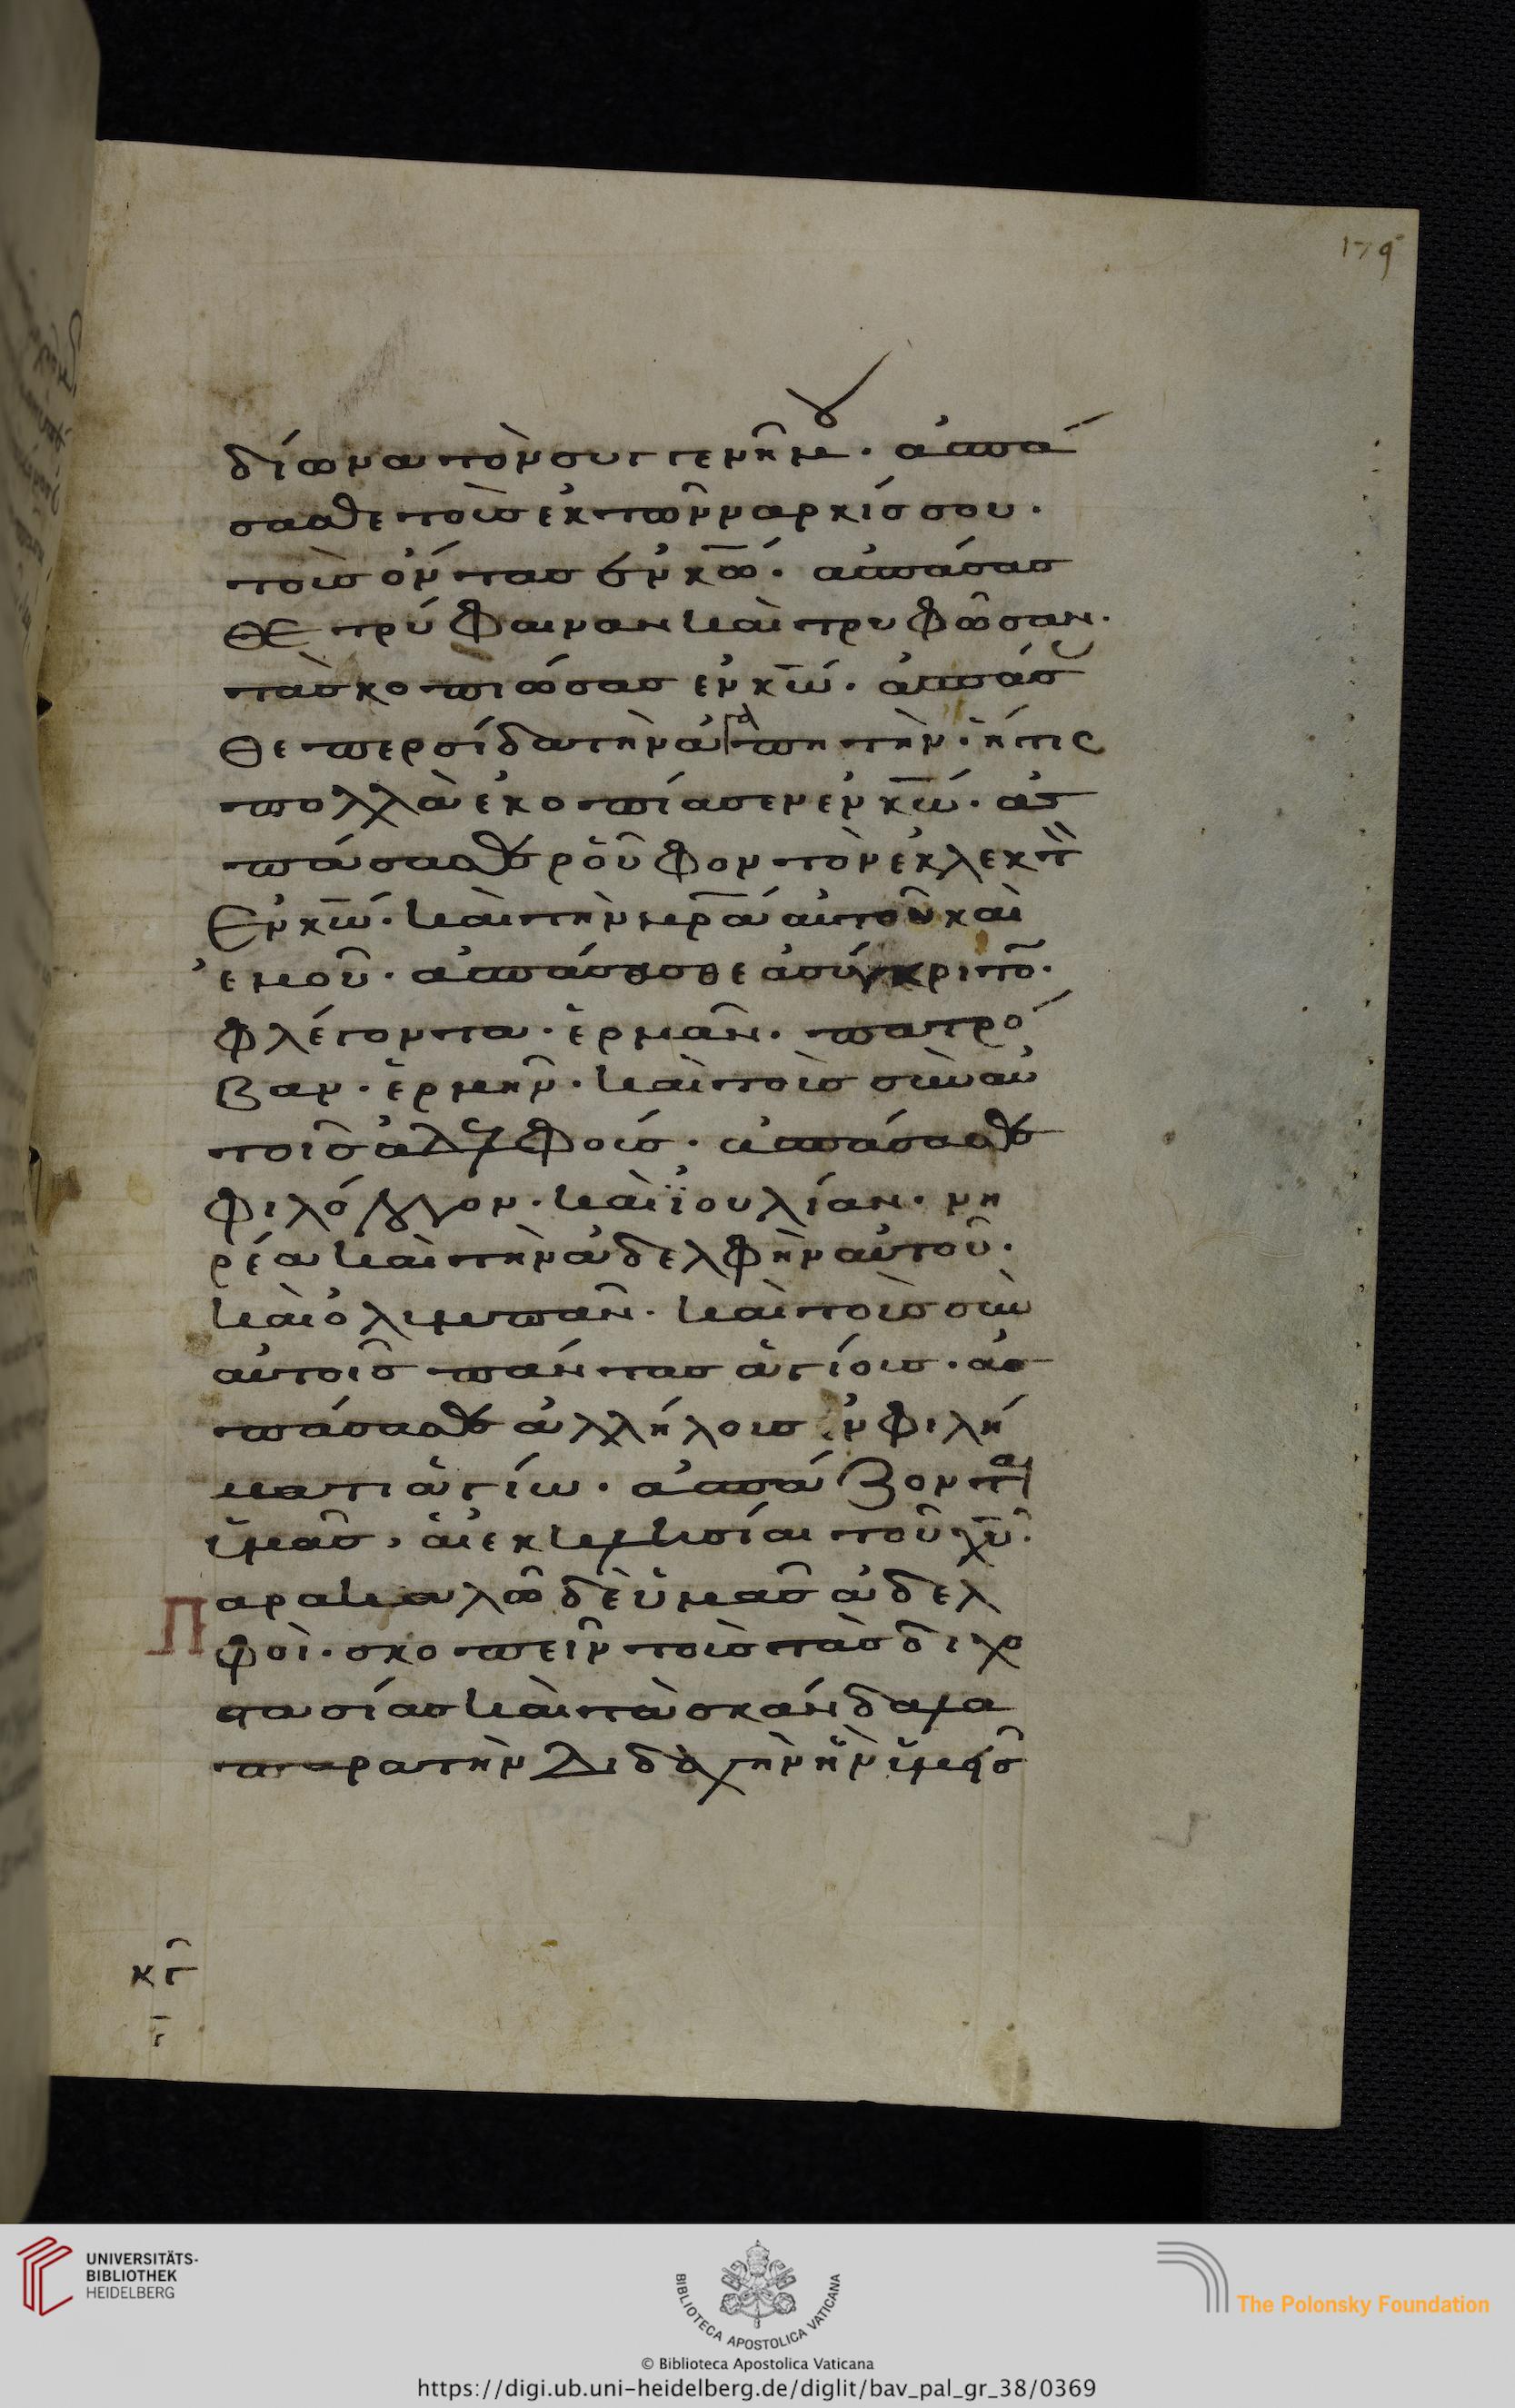 179
δίωνα τὸν συγγενῆ μου· ἀσπά
σασθε τοὺς ἐκ τῶν ναρκίσσου·
τοὺς ὄντας ἐν κ̅ω̅· ἀσπάσασ
θε τρύφαιναν καὶ τρυφῶσαν·
τὰς κοπιώσας ἐν κ̅ω̅· ἀσπάσασ
θε περσίδα τὴν ἀγαπητὴν· ἥτις
πολλὰ ἐκοπίασεν ἐν κ̅ω̅· ἀσ
πάσασθε ροῦφον τὸν ἐκλεκτὸν
ἐν κ̅ω̅· καὶ τὴν μ̅ρ̅α̅ αὐτοῦ καὶ
ἐμοῦ· ἀσπάσασθε ἀσύγκριτο̅·
φλέγοντα· ἑρμᾶν· πατρό
βαν· ἑρμῆν· καὶ τοὺς σὺν αὐ
τοῖς ἀδελφούς· ἀσπάσασθε
φιλόλογον· καὶ ϊουλίαν· νη
ρέα καὶ τὴν ἀδελφὴν αὐτοῦ·
καὶ ὀλυμπᾶν· καὶ τοὺς σὺν
αὐτοῖς πάντας ἁγίους· ἀσ
πάσασθε ἀλλήλους ἐν φιλή
ματι ἁγίω· ἀσπάζονται
ὑμᾶς, αἱ ἐκκλησίαι τοῦ χ̅υ̅·
Παρακαλῶ δὲ ὑμᾶς ἀδελ
φοὶ· σκοπεῖν τοὺς τὰς διχο
στασίας καὶ τὰ σκάνδαλα
παρὰ τὴν διδαχὴν ἣν ὑμεῖς
κγ
γ̅
UNIVERSITÄTS-
BIBLIOTHEK
HEIDELBERG
BIBLIOTECA APOSTOLICA VATICANA
The Polonsky Foundation
© Biblioteca Apostolica Vaticana
https://digi.ub.uni-heidelberg.de/diglit/bav_pal_gr_38/0369